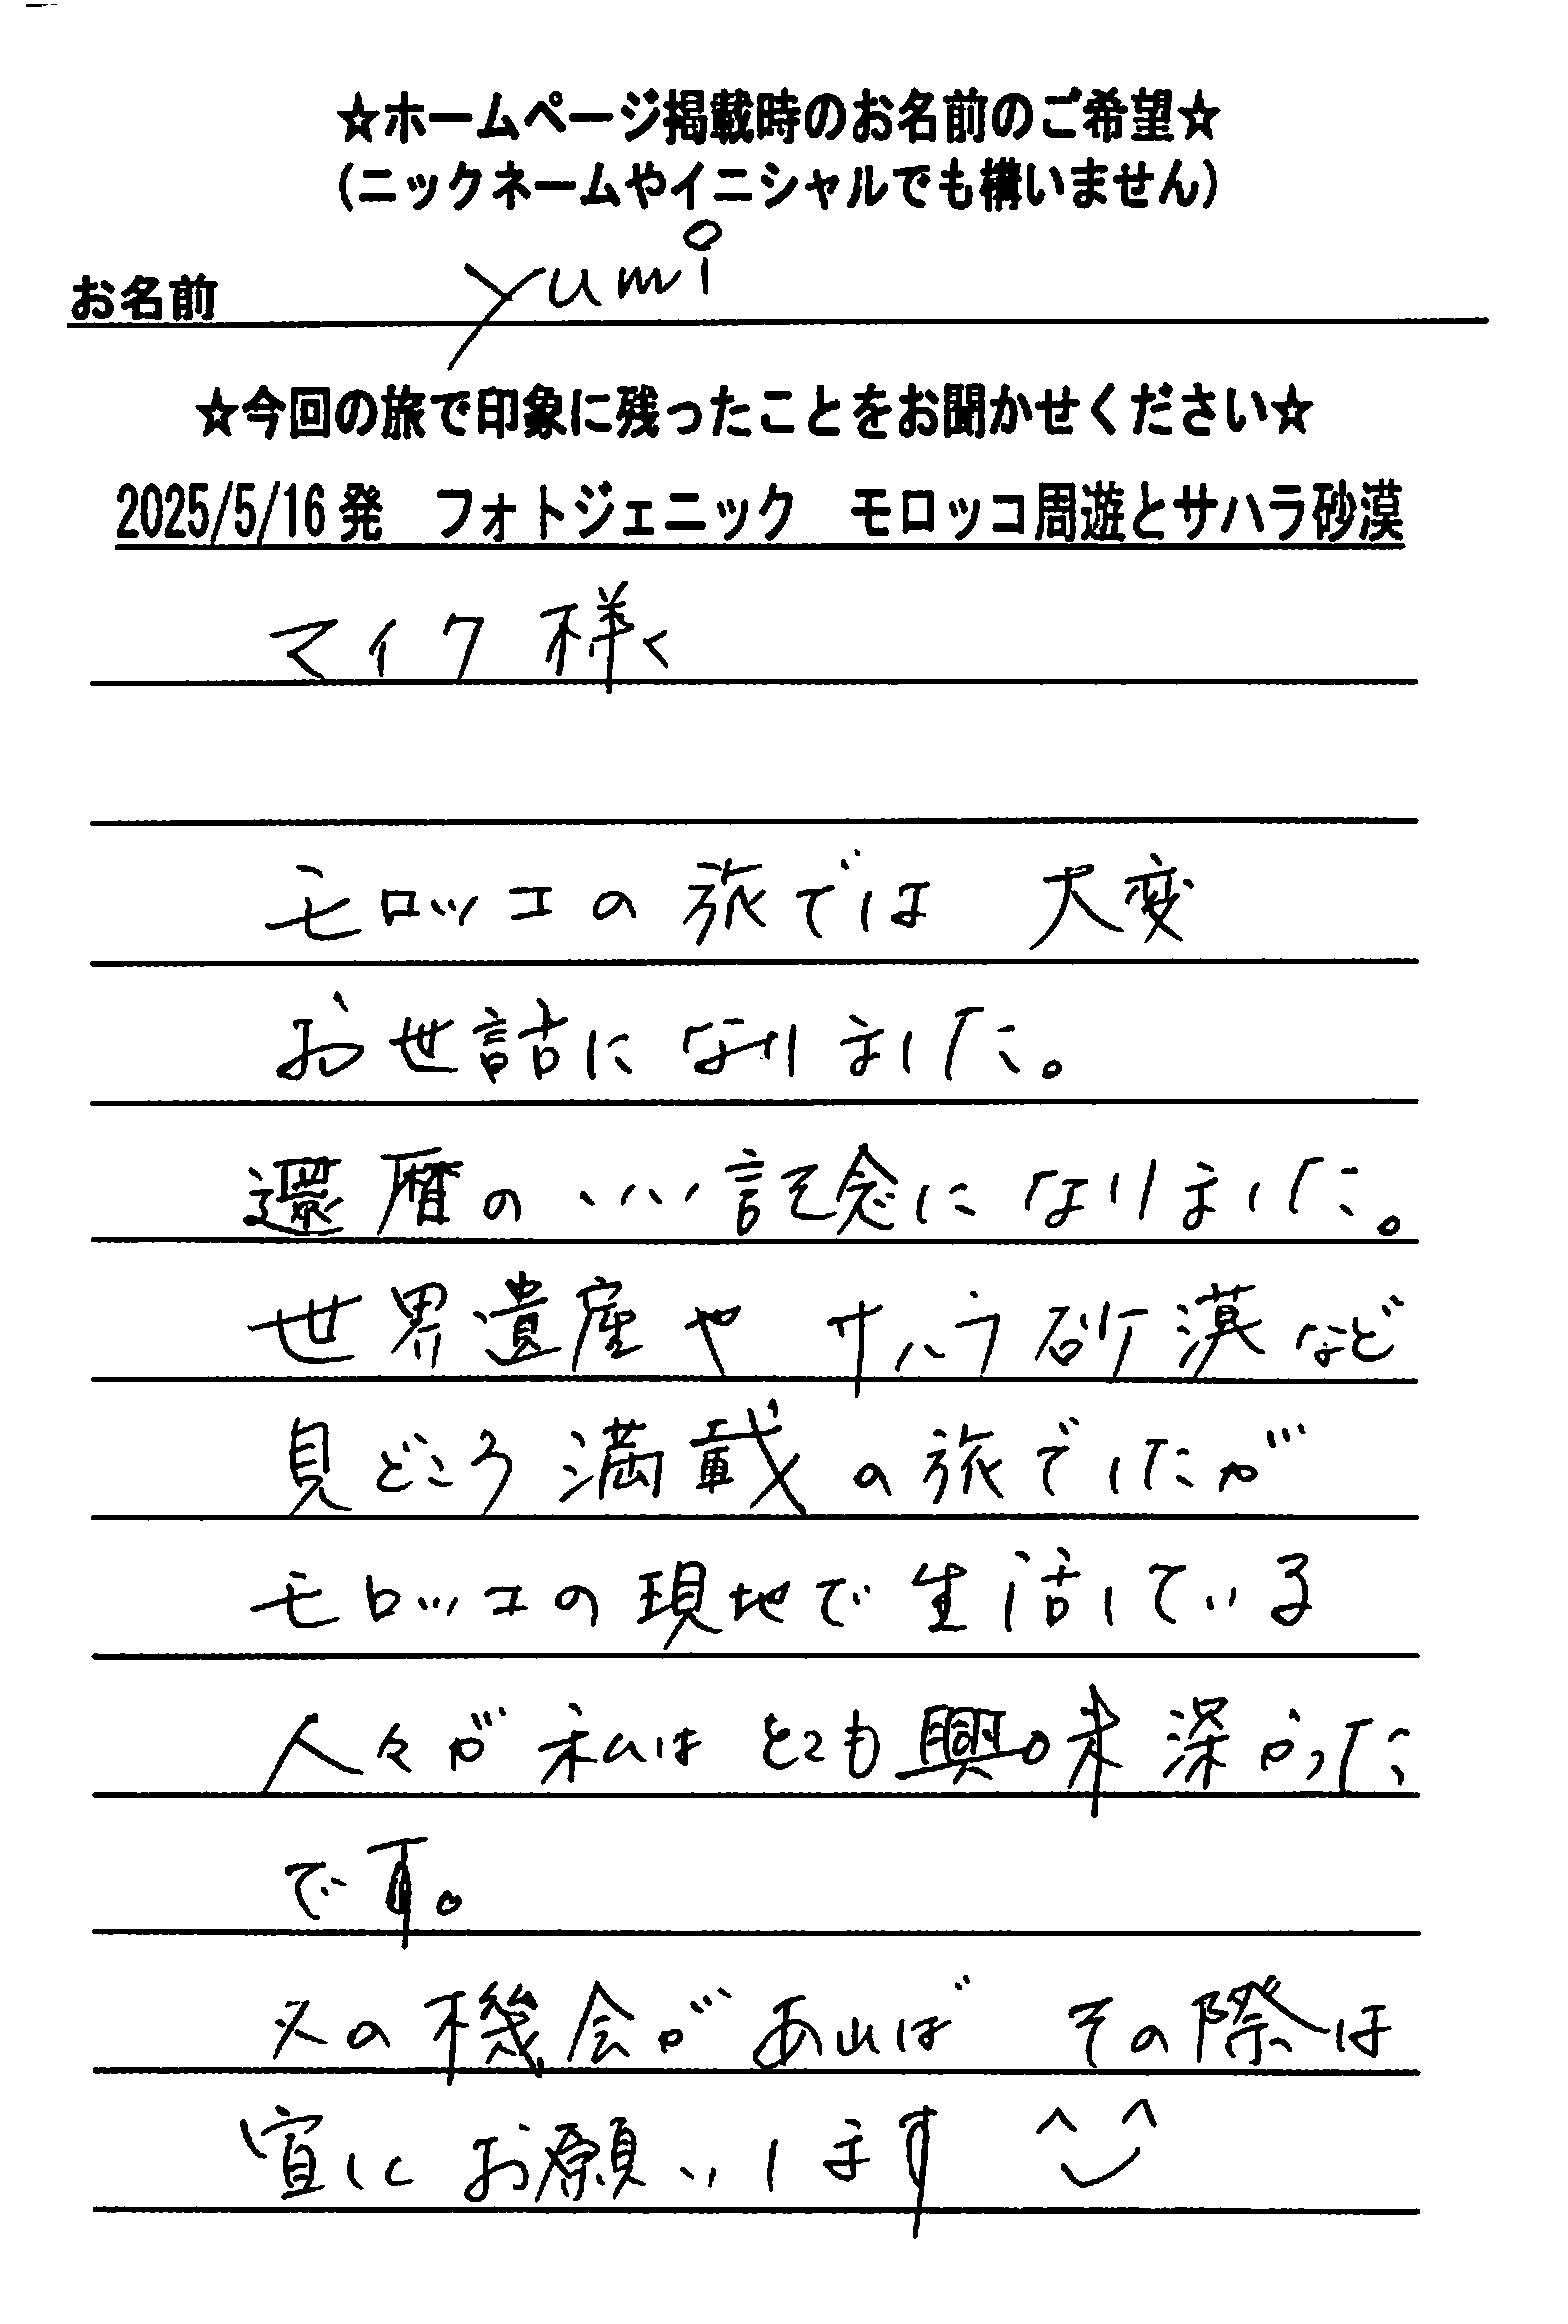 ☆ホームページ掲載時のお名前のご希望☆
(ニックネームやイニシャルでも構いません)
お名前 yumi
☆今回の旅で印象に残ったことをお聞かせください☆
2025/5/16発 フォトジェニック モロッコ周遊とサハラ砂漠
マイク様く
モロッコの旅では 大変
お世詁になりました。
還暦のいい記念になりました。
世界遺産や サハラ砂漠など
見どころ満載の旅でしたが
モロッコの現地で生活している
人々が私はとても興味深かった
です。
又の機会があればその際は
宜にお願いします ^‿^